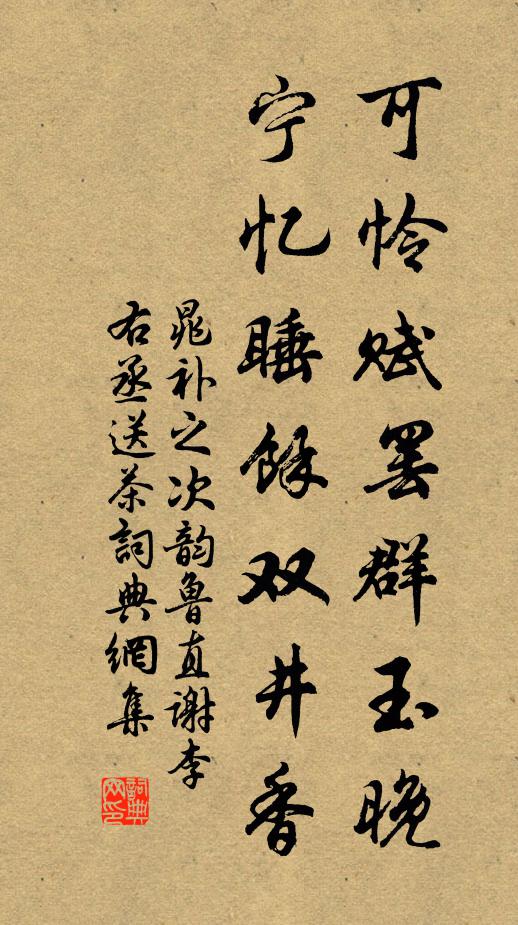 可怜赋罢群玉晚
宁忆睡馀双井香
晁补之次韵鲁直谢李
右丞送茶詞典網集
詞典
网印